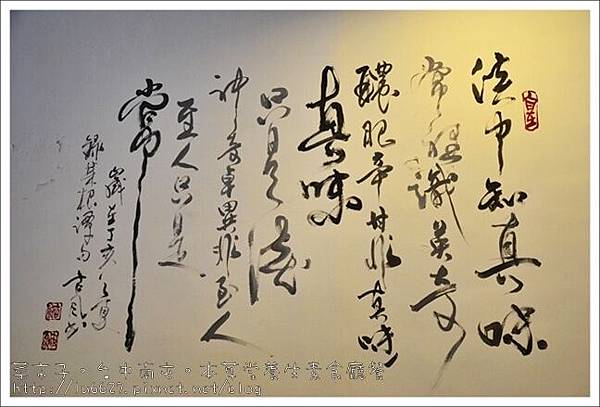 淡中知真味
常裡識英奇
醲肥辛甘非真味
真味
只是淡
神奇卓異非至人
至人只是
常
歲在丁亥之夏
錄菜根譚句
台中南屯。本草堂養生素食